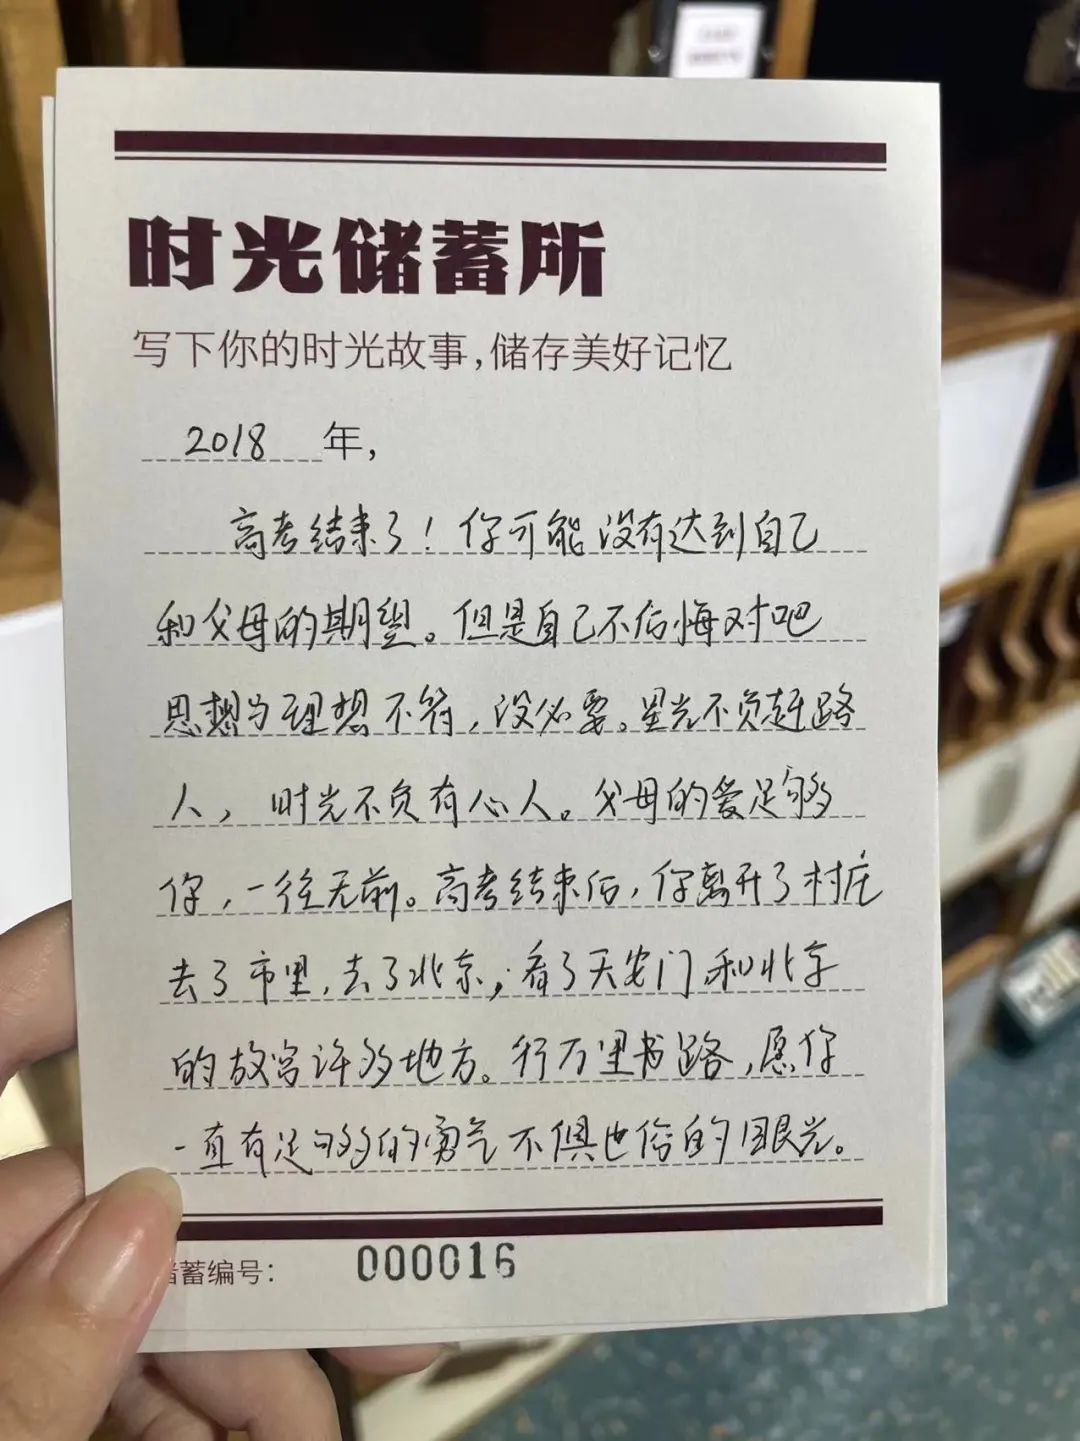 时光储蓄所
写下你的时光故事,储存美好记忆
2018 年,
高考结束了！你可能没有达到自己
和父母的期望。但是自己不后悔对吧
思想与理想不符，没必要。星光不负赶路
人，时光不负有心人。父母的爱足够
你，一往无前。高考结束后，你离开了村庄
去了市里，去了北京，看了天安门和北京
的故宫许多地方。行万里书路，愿你
一直有足够的勇气不惧世俗的眼光。
储蓄编号：000016